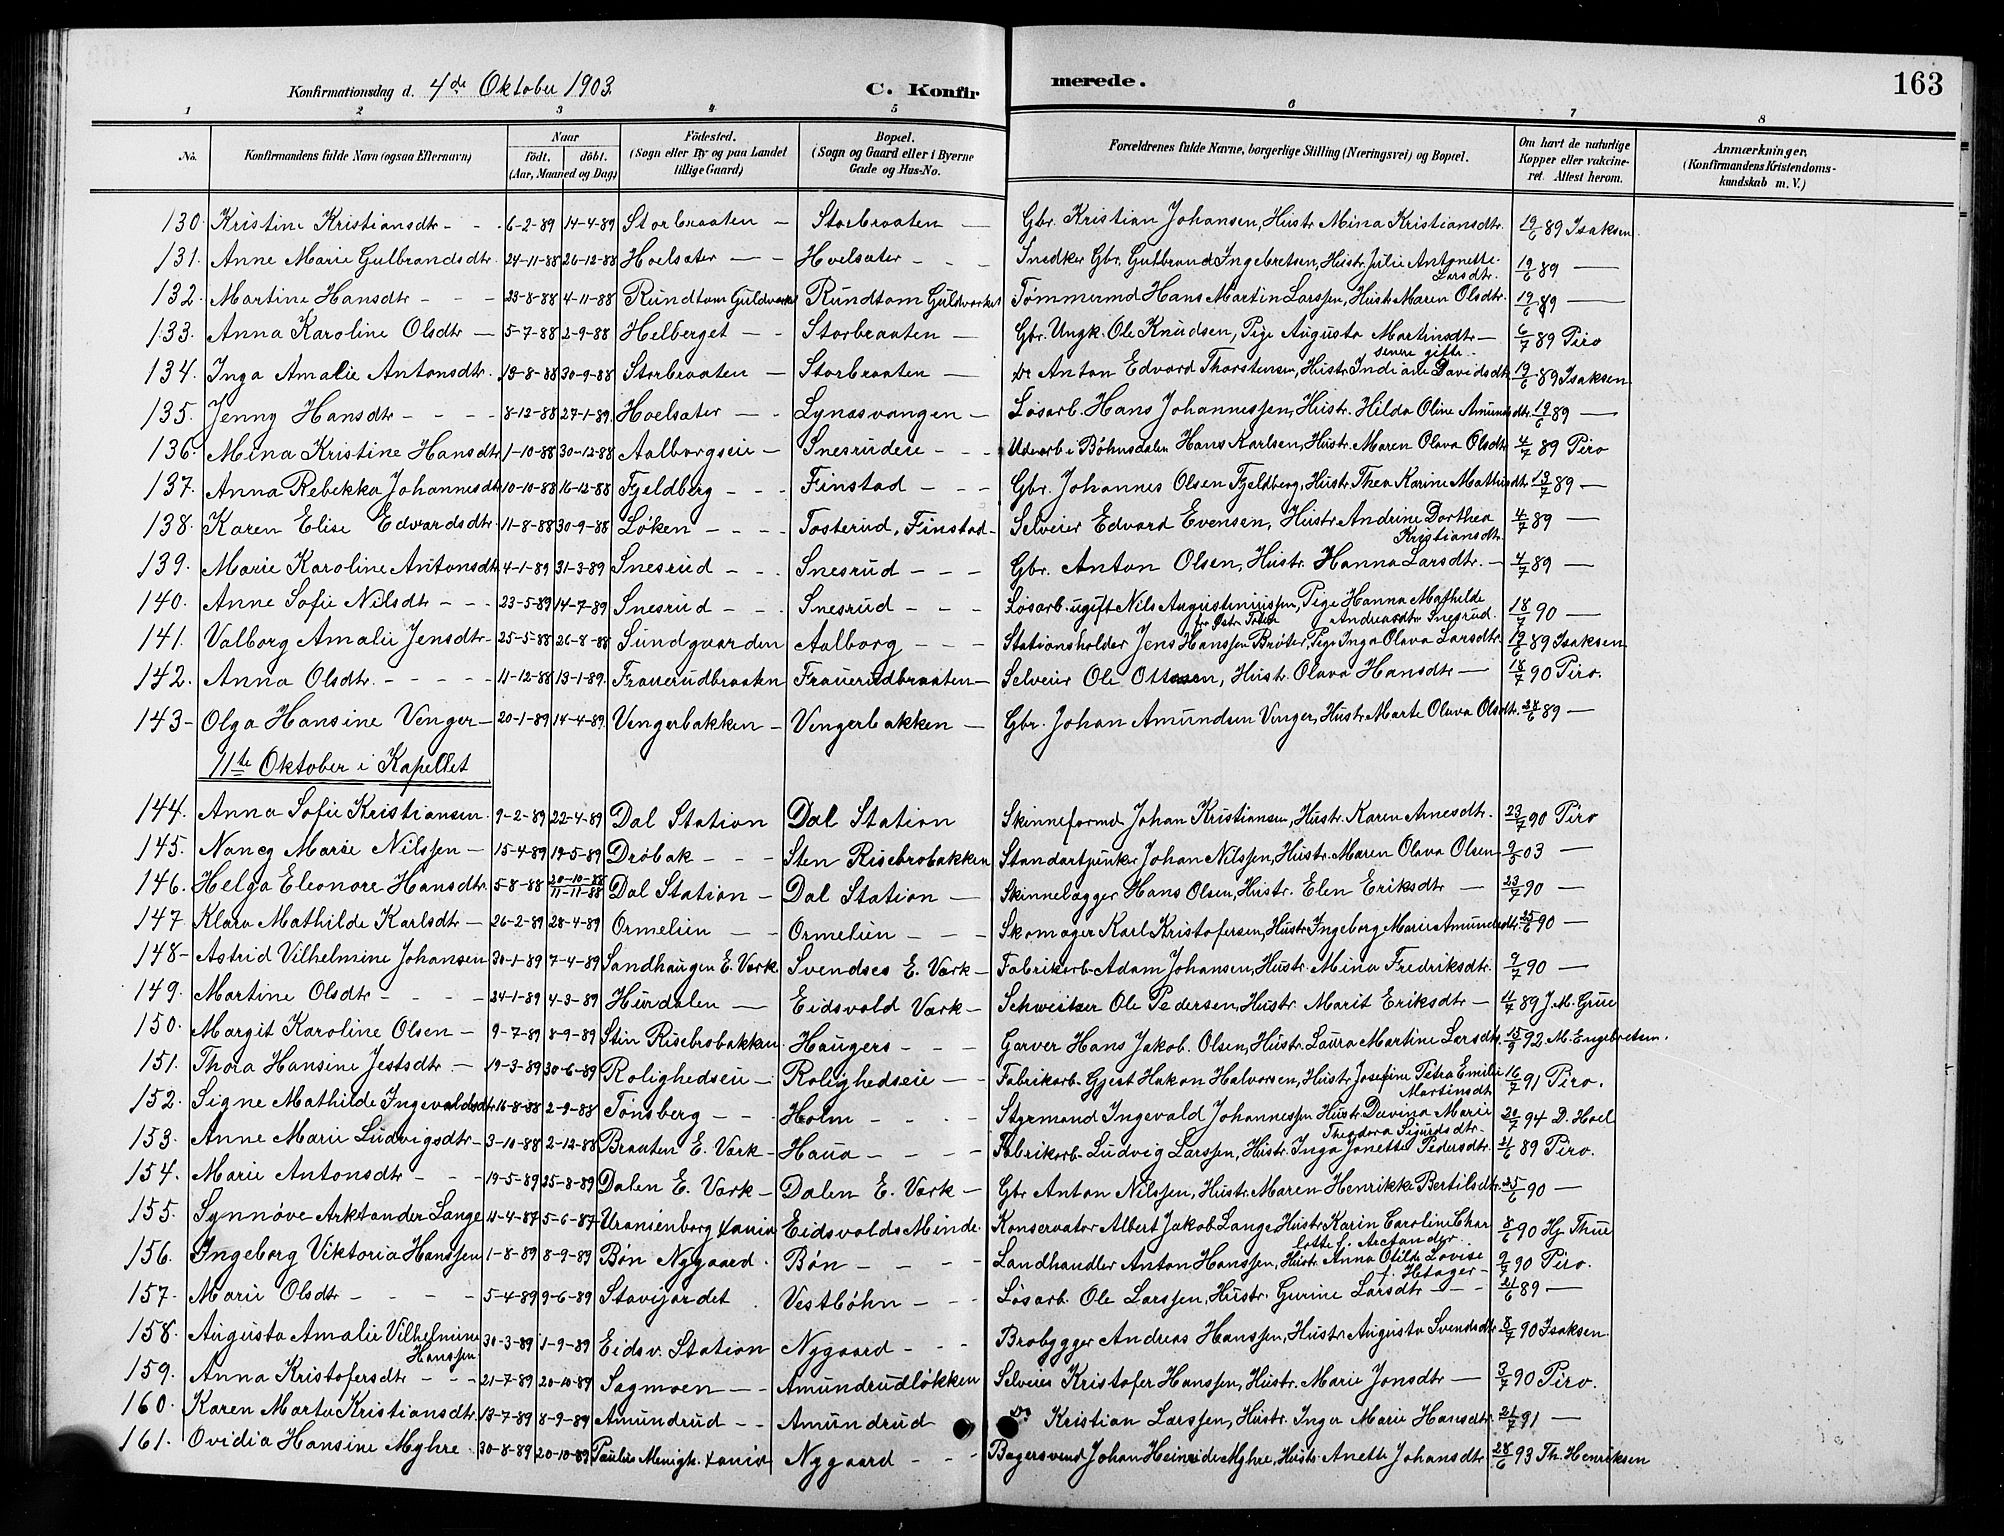 Konfirmationsdag d. 4de Oktober 1903.
C. Konfirmerede.
163
1 2 3 4 5 6 7 8
No. Konfirmandens fulde Navn (ogsaa Efternavn) Naar födt. döbt. (Aar, Maaned og Dag) Födested. (Sogn eller By og paa Landet tillige Gaard) Bopæl. (Sogn og Gaard eller i Byerne Gade og Hus-No. Forældrenes fulde Navne, borgerlige Stilling (Næringsvei) og Bopæl. Om havt de naturlige Kopper eller vakcineret. Attest herom. Anmærkninger, (Konfirmandens Kristendomskundskab m. V.)
130 Kristine Kristiansdtr - - 6-2-89 14-4-89 Storbraaten - Storbraaten - Gbr. Kristian Johansen, Hustr. Mina Kristiansdtr. 19/6 89 Isaksen.
131. Anne Marie Gulbrandsdtr. 24-11-88 26-12-88 Hoelsæter - - Hoelsæter - - - Snedker Gbr. Gulbrand Ingebretsen, Hustr. Julie Antonette Larsdtr. 19/6 89 -
132. Martine Hansdtr - - - 23-8-88 4-11-88 Rundtom Guldværket Rundtom Guldværket Tømmermd Hans Martin Larssen, Hustr. Maren Olsdtr. 19/6 89 -
133. Anna Karoline Olsdtr - 5-7-88 2-9-88 Helberget - - Storbraaten - Gbr. Ungk. Ole Knudsen, Pige Augusta Martinsdtr - senere gifte. 6/7 89 Piro
134. Inga Amalie Antonsdtr. 19-8-88 30-9-88 Storbraaten - Storbraaten - Do Anton Edvard Thorstensen, Hustr. Indiane Davidsdtr. 19/6 89 Isaksen
135. Jenny Hansdtr - - - - 8-12-88 27-1-89. Hoelsæter - - Lynæsvangen - Løsarb. Hans Johannessen, Hustr. Hilda Oline Amundsdtr. 19/6 89 -
136. Mina Kristine Hansdtr 1-10-88 30-12-88 Aalborgseie - Snesrudeie - - - Udearb i Bøhnsdalen Hans Karlsen, Hustr. Maren Olava Olsdtr. 4/7 89 Piro
137. Anna Rebekka Johannesdtr 10-10-88 16-12-88 Fjeldberg - - - Finstad - - - Gbr. Johannes Olsen Fjeldberg, Hustr. Thea Karine Mathisdtr. 13/7 89 -
138. Karen Elise Edvardsdtr. 11-8-88 30-9-88 Løken - - - Tosterud, Finstad - Selveier Edvard Evensen, Hustr. Andrine Dorthea Kristiansdtr. 4/7 89 -
139. Marie Karoline Antonsdtr 4-1-89 31-3-89 Snesrud - - . Snesrud - - - Gbr. Anton Olsen, Hustr. Hanna Larsdtr. - 4/7 89 -
140. Anne Sofie Nilsdtr - - - 23-5-89 14-7-89 Snesrud - - . Snesrud - - - Løsarb. ugift Nils Augustenussen, Pige Hanna Mathilde Andreasdtr. Snesrud. 18/7 90 -
141. Valborg Amalie Jensdtr. 25-5-88 26-8-88 Sundgaarden Aalborg - - - Stationsholder Jens Hanssen Brøter, Pige Inga Olava Larsdtr. 19/6 89 Isaksen
142. Anna Olsdtr. - - - - - 11-12-88 13-1-89. Frauerudbraaten Frauerudbraaten - Selveier Ole Ottesen, Hustr. Olava Hansdtr - 18/7 90 Piro.
143 - Olga Hansine Venger - 20-1-89 14-4-89 Vengerbakken - Vengerbakken - Gbr. Johan Amundsen Venger, Hustr. Marte Olava Olsdtr. 28/6 89 -
11te Oktober i Kapellet
144. Anna Sofie Kristiansen. 9-2-89 22-4-89 Dal Station Dal Station Skinneformd Johan Kristiansen, Hustr. Karen Arnesdtr. 23/7 90 Piro
145. Nancy Marie Nilssen - 15-4-89 19-5-89 Drøbak - - - Sten Risebrobakken Standartjunker Johan Nilssen, Hustr. Maren Olava Olsen 9/5 03 -
146. Helga Eleonore Hansdtr. 5-8-88 20-10-88 11-11-88 Dal Station - Dal Station - Skinnelægger Hans Olsen, Hustr. Elen Eriksdtr - 23/7 90 -
147 Klara Mathilde Karlsdtr - 26-2-89 28-4-89 Ormelien - - Ormelien - - - Skomager Karl Kristofersen, Hustr. Ingeborg Marie Amundsdtr. 25/6 90 -
148 - Astrid Vilhelmine Johansen 30-1-89 7-4-89 Sandhaugen E. Værk Svendses E. Værk - Fabrikarb. Adam Johansen, Hustr. Mina Fredriksdtr. 9/7 90 -
149. Martine Olsdtr - - - - 24-1-89 4-3-89 Hurdalen - Eidsvold Værk - Schweitser Ole Pedersen, Hustr. Marit Eriksdtr - 11/7 89 J. M. Grue
150. Margit Karoline Olsen - 9-7-89 8-9-89 Sten Risebrobakken. Haugers - - Garver Hans Jakob Olsen, Hustr. Laura Martine Larsdtr. 15/9 92 M. Engebretsen.
151. Thora Hansine Jestsdtr. - 19-3-89 30-6-89 Rolighedseie - Rolighedseie - - Fabrikarb. Gjest Hakon Halvorsen, Hustr. Josefine Petra Emilie Martinsdtr. 16/7 91 Piro.
152. Signe Mathilde Ingevaldsdtr. 16-8-88 2-9-88 Tønsberg - - Holm - - - - Styrmand Ingevald Johannessen Hustr. Davina Marie Theodora Sigurdsdtr. 20/7 94 D. Hoel
153. Anne Marie Ludvigsdtr - 3-10-88 2-12-88 Braaten E. Værk - Haua - - - - Fabrikarb. Ludvig Larssen, Hustr. Inga Janette Pedersdtr. 21/6 89 Piro.
154. Marie Antonsdtr - - - 19-5-89 25-8-89 Dalen E. Værk - Dalen E. Værk - Gbr Anton Nilssen, Hustr. Maren Henrikke Bertilsdtr. 25/6 90 -
155. Synnøve Arktander Lange 11-4-87 5-6-87 Uranienborg Xania Eidsvolds Minde. Konservator Albert Jakob Lange Hustr. Karin Caroline Charlotte f. Arctander 8/6 90 Hj. Thue
156. Ingeborg Viktoria Hanssen 1-8-89 8-9-89 Bøn Nygaard. Bøn - - - - Landhandler Anton Hanssen, Hustr. Anna Otilde Lovise f. Hetager - 9/7 90 Piro.
157. Marie Olsdtr - - - - 5-4-89 9-6-89 Stavijordet . Vestbøhn - - Løsarb. Ole Larssen, Hustr. Gurine Larsdtr - - - 21/6 89 -
158. Augusta Amalie Vilhelmine Hanssen 30-3-89 1-9-89 Eidsv. Station Nygaard - - - Brobygger Andreas Hanssen, Hustr. Augusta Svendsdtr. 8/7 90 Isaksen.
159. Anna Kristofersdtr - - - 21-7-89 20-10-89 Sagmoen - - Amundrudløkken Selveier Kristofer Hanssen, Hustr. Marie Jonsdtr - 3/7 90 Piro.
160. Karen Marta Kristiansdtr. 13-7-89 8-9-89 Amundrud - - Amundrud Do Kristian Larssen, Hustr. Inger Marie Hansdtr. 21/7 91 -
161. Ovidia Hansine Myhre. 30-8-89 20-10-89 Paulus Menigh. Xania Nygaard - - - Bagersvend Johan Heinride Myhre, Hustr. Anette Johansdtr. 28/6 93 Th. Henriksen